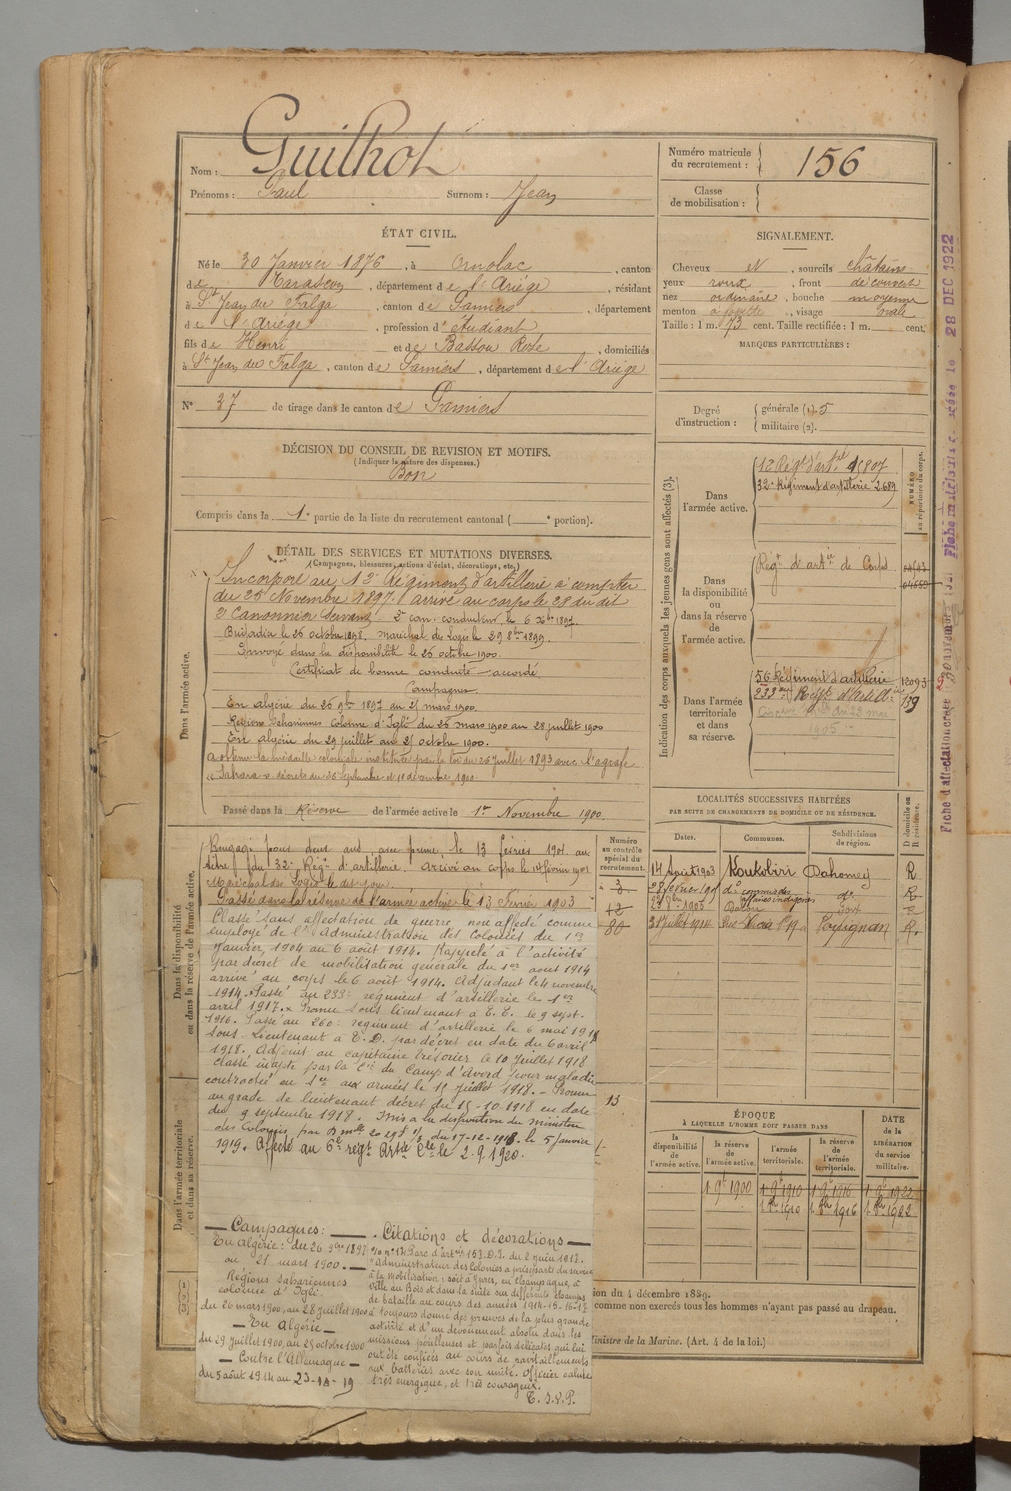 Nom : Guilhot
Prénoms : Paul Surnom : Jean
Numéro matricule du recrutement : 156
Classe de mobilisation :
ÉTAT CIVIL.
Né le 30 Janvier 1876, à Ornolac, canton
de Tarascon, département de l'Ariège, résidant
à St Jean du Falga, canton de Pamiers, département
de l'Ariège, profession d'étudiant
fils de Henri et de Bassou Rose, domiciliés
à St Jean du Falga, canton de Pamiers, département de l'Ariège
N° 37 de tirage dans le canton de Pamiers
SIGNALEMENT.
Cheveux N, sourcils châtains
yeux roux, front découvert
nez ordinaire, bouche moyenne
menton à fossette, visage ovale
Taille : 1 m. 73 cent. Taille rectifiée : 1 m. cent.
MARQUES PARTICULIÈRES :
Degré d'instruction : générale (1). 5
militaire (2).
DÉCISION DU CONSEIL DE REVISION ET MOTIFS.
(Indiquer la nature des dispenses.)
Bon
Compris dans la 1e partie de la liste du recrutement cantonal ( e portion).
DÉTAIL DES SERVICES ET MUTATIONS DIVERSES.
(Campagnes, blessures, actions d'éclat, décorations, etc.)
Dans l'armée active.
Incorporé au 12e Régiment d'artillerie à compter
du 25 Novembre 1897. arrivé au corps le 28 du dit
2e Canonnier Servant. 2e can. conducteur le 6 Xbre 1897.
Brigadier le 26 octobre 1898. Maréchal des Logis le 29 8bre 1899.
Envoyé dans la disponibilité le 25 octobre 1900.
Certificat de bonne conduite accordé
Campagnes
En Algérie du 26 9bre 1897 au 21 mars 1900.
Régions Sahariennes Colonne d'Igli du 25 mars 1900 au 28 juillet 1900
En Algérie du 29 juillet au 25 octobre 1900.
a obtenu la médaille coloniale instituée par la loi du 26 juillet 1893 avec l'agrafe
"Sahara" décrets du
Passé dans la Réserve de l'armée active le 1er Novembre 1900.
Indication des corps auxquels les jeunes gens sont affectés (3).
Dans l'armée active.
12 Régt d'artie 15807
32e Régiment d'artillerie 2.689
NUMÉRO au répertoire du corps.
Dans la disponibilité ou dans la réserve de l'armée active.
Régt d'artie de Corps
Dans l'armée territoriale et dans sa réserve.
56 Régiment d'artillerie 12093
233me Regt d'artillie 139
1905
LOCALITÉS SUCCESSIVES HABITÉES
PAR SUITE DE CHANGEMENTS DE DOMICILE OU DE RÉSIDENCE.
Dates. Communes. Subdivisions de région. D domicile ou R résidence.
14 Août 1903 Koukobiri Dahomey R
do R
affaires indigènes
1905
31 juillet 1914 Perpignan R.
Dans la disponibilité ou dans la réserve de l'armée active.
Numéro au contrôle spécial du recrutement.
3
12
80
13
Rengagé pour deux ans, avec prime, le 13 février 1901 au
titre du 32e Régt d'artillerie. Arrivé au corps le 14 février 1901
Maréchal des Logis le dit jour.
Passé dans la réserve de l'armée active le 13 Février 1903
Classé sans affectation de guerre, non affecté comme
employé de l'Administration des Colonies du 1er
Janvier 1904 au 6 août 1914. Rappelé à l'activité
par décret de mobilisation générale du 1er août 1914
arrivé au corps le 6 août 1914. Adjudant le 4 novembre
1914. Passé au 233e régiment d'artillerie le 1er
avril 1917. x Promu sous lieutenant à T.T. le 9 sept.
1916. Passé au 260e régiment d'artillerie le 6 mai 191
sous-Lieutenant à T.D. par décret en date du 6 avril
1918. Adjoint au capitaine trésorier le 10 Juillet 1918
classé inapte par la Con du Camp d'Avord pour maladie
contractée en 1er aux armées le 11 Juillet 1918. - Promu
au grade de lieutenant décret du 15-10.1918 en date
du 9 septembre 1918. Mis à la disposition du ministre
des Colonies par du 17-12-1918. le 5 Janvier
1919. Affecté au 6e régt Artie Cle le 2.9.1920.
Dans l'armée territoriale et dans sa réserve.
Campagnes :
En Algérie : du 26 9bre 1897
au 21 mars 1900.
Régions sahariennes
colonne d'Igli
du 26 mars 1900, au 28 juillet 1900
En Algérie
du 29 juillet 1900, au 25 octobre 1900
Contre l'Allemagne
du 5 août 1914 au 23-10-19
Citations et décorations
Parc d'artie 153.D.I. du 2 juin 1917.
"Administrateur des Colonies a pris part
à la mobilisation ; soit à Ypres, en Champagne, à
Ville au Bois et dans la suite sur différents champs
de bataille au cours des années 1914-15-16-17
a toujours donné des preuves de la plus grande
activité et d'un dévouement absolu dans les
missions périlleuses et parfois délicates qui lui
ont été confiées au cours de ravitaillements
aux batteries avec son unité. Officier
très énergique, et très courageux.
ÉPOQUE
À LAQUELLE L'HOMME DOIT PASSER DANS
la disponibilité de l'armée active. la réserve de l'armée active. l'armée territoriale. la réserve de l'armée territoriale.
DATE de la LIBÉRATION du service militaire.
1 9e 1900 1 9e 1910 1 9e 1916 1 9e 1922
1. 8bre 1910 1. 8bre 1916 1. 8bre 1922
ion du 4 décembre 1889.
comme non exercés tous les hommes n'ayant pas passé au drapeau.
Ministre de la Marine. (Art. 4 de la loi.)
28 DEC 1922